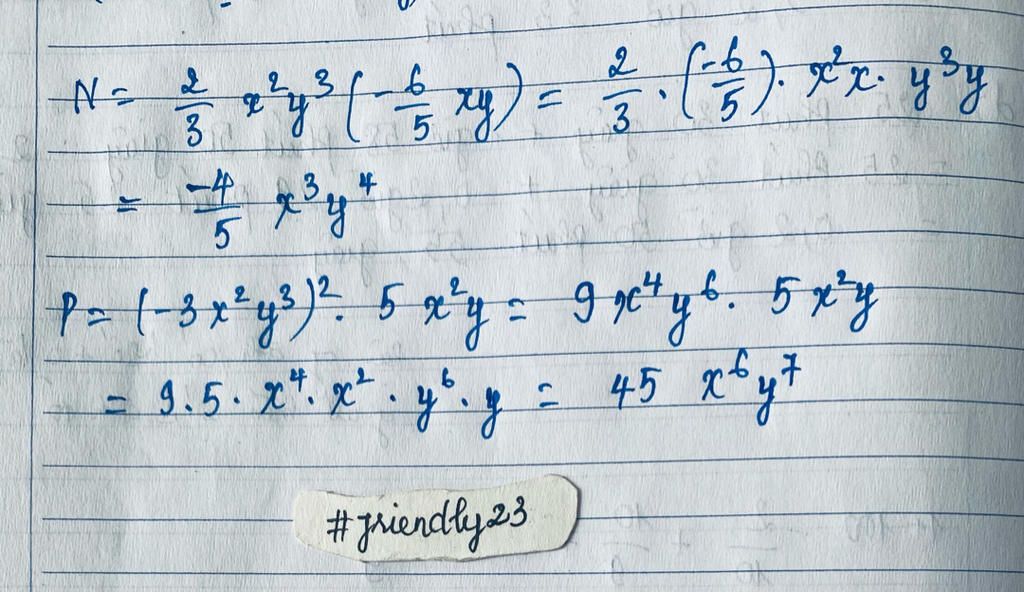 N = 2/3 x²y³ (-6/5 xy) = 2/3 · (-6/5) · x²x · y³y
= -4/5 x³y⁴
P = (-3x²y³)² · 5x²y = 9x⁴y⁶ · 5x²y
= 9.5 · x⁴ · x² · y⁶ · y = 45 x⁶y⁷
#friendly23